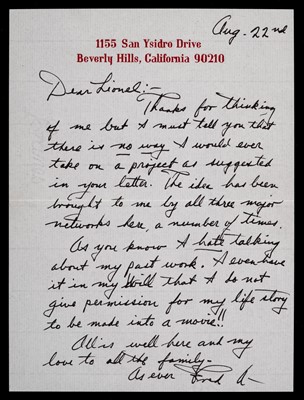 Aug. 22nd
1155 San Ysidro Drive
Beverly Hills, California 90210
Dear Lionel:-
Thanks for thinking
of me but I must tell you that
there is no way I would ever
take on a project as suggested
in your letter. The idea has been
brought to me by all three major
networks here, a number of times.
As you know I hate talking
about my past work. I even have
it in my will that I do not
give permission for my life story
to be made into a movie!!
All is well here and my
love to all the family-
As ever Fred A-